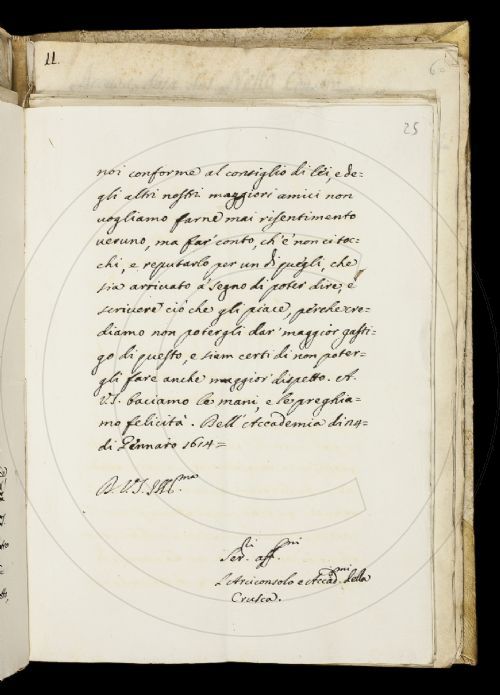 11.
60
25
noi conforme al consiglio di lei, e de=
gli altri nostri maggiori amici non
vogliamo farne mai risentimento
veruno, ma far' conto, ch'è non ci toc=
chi, e reputarlo per un di quegli, che
sia arrivato à segno di poter dire, e
scrivere ciò che gli piace, perche cre=
diamo non potergli dar' maggior gasti=
go di questo, e siam certi di non poter=
gli fare anche maggior dispetto. A.
V.S. baciamo le mani, e le preghia=
mo felicità. Dell'Accademia di 14=
di Gennaro 1614=
D. V.S. Ill.ma
Ser.ri aff.mi
L'Arciconsolo e Accad.mi della
Crusca.